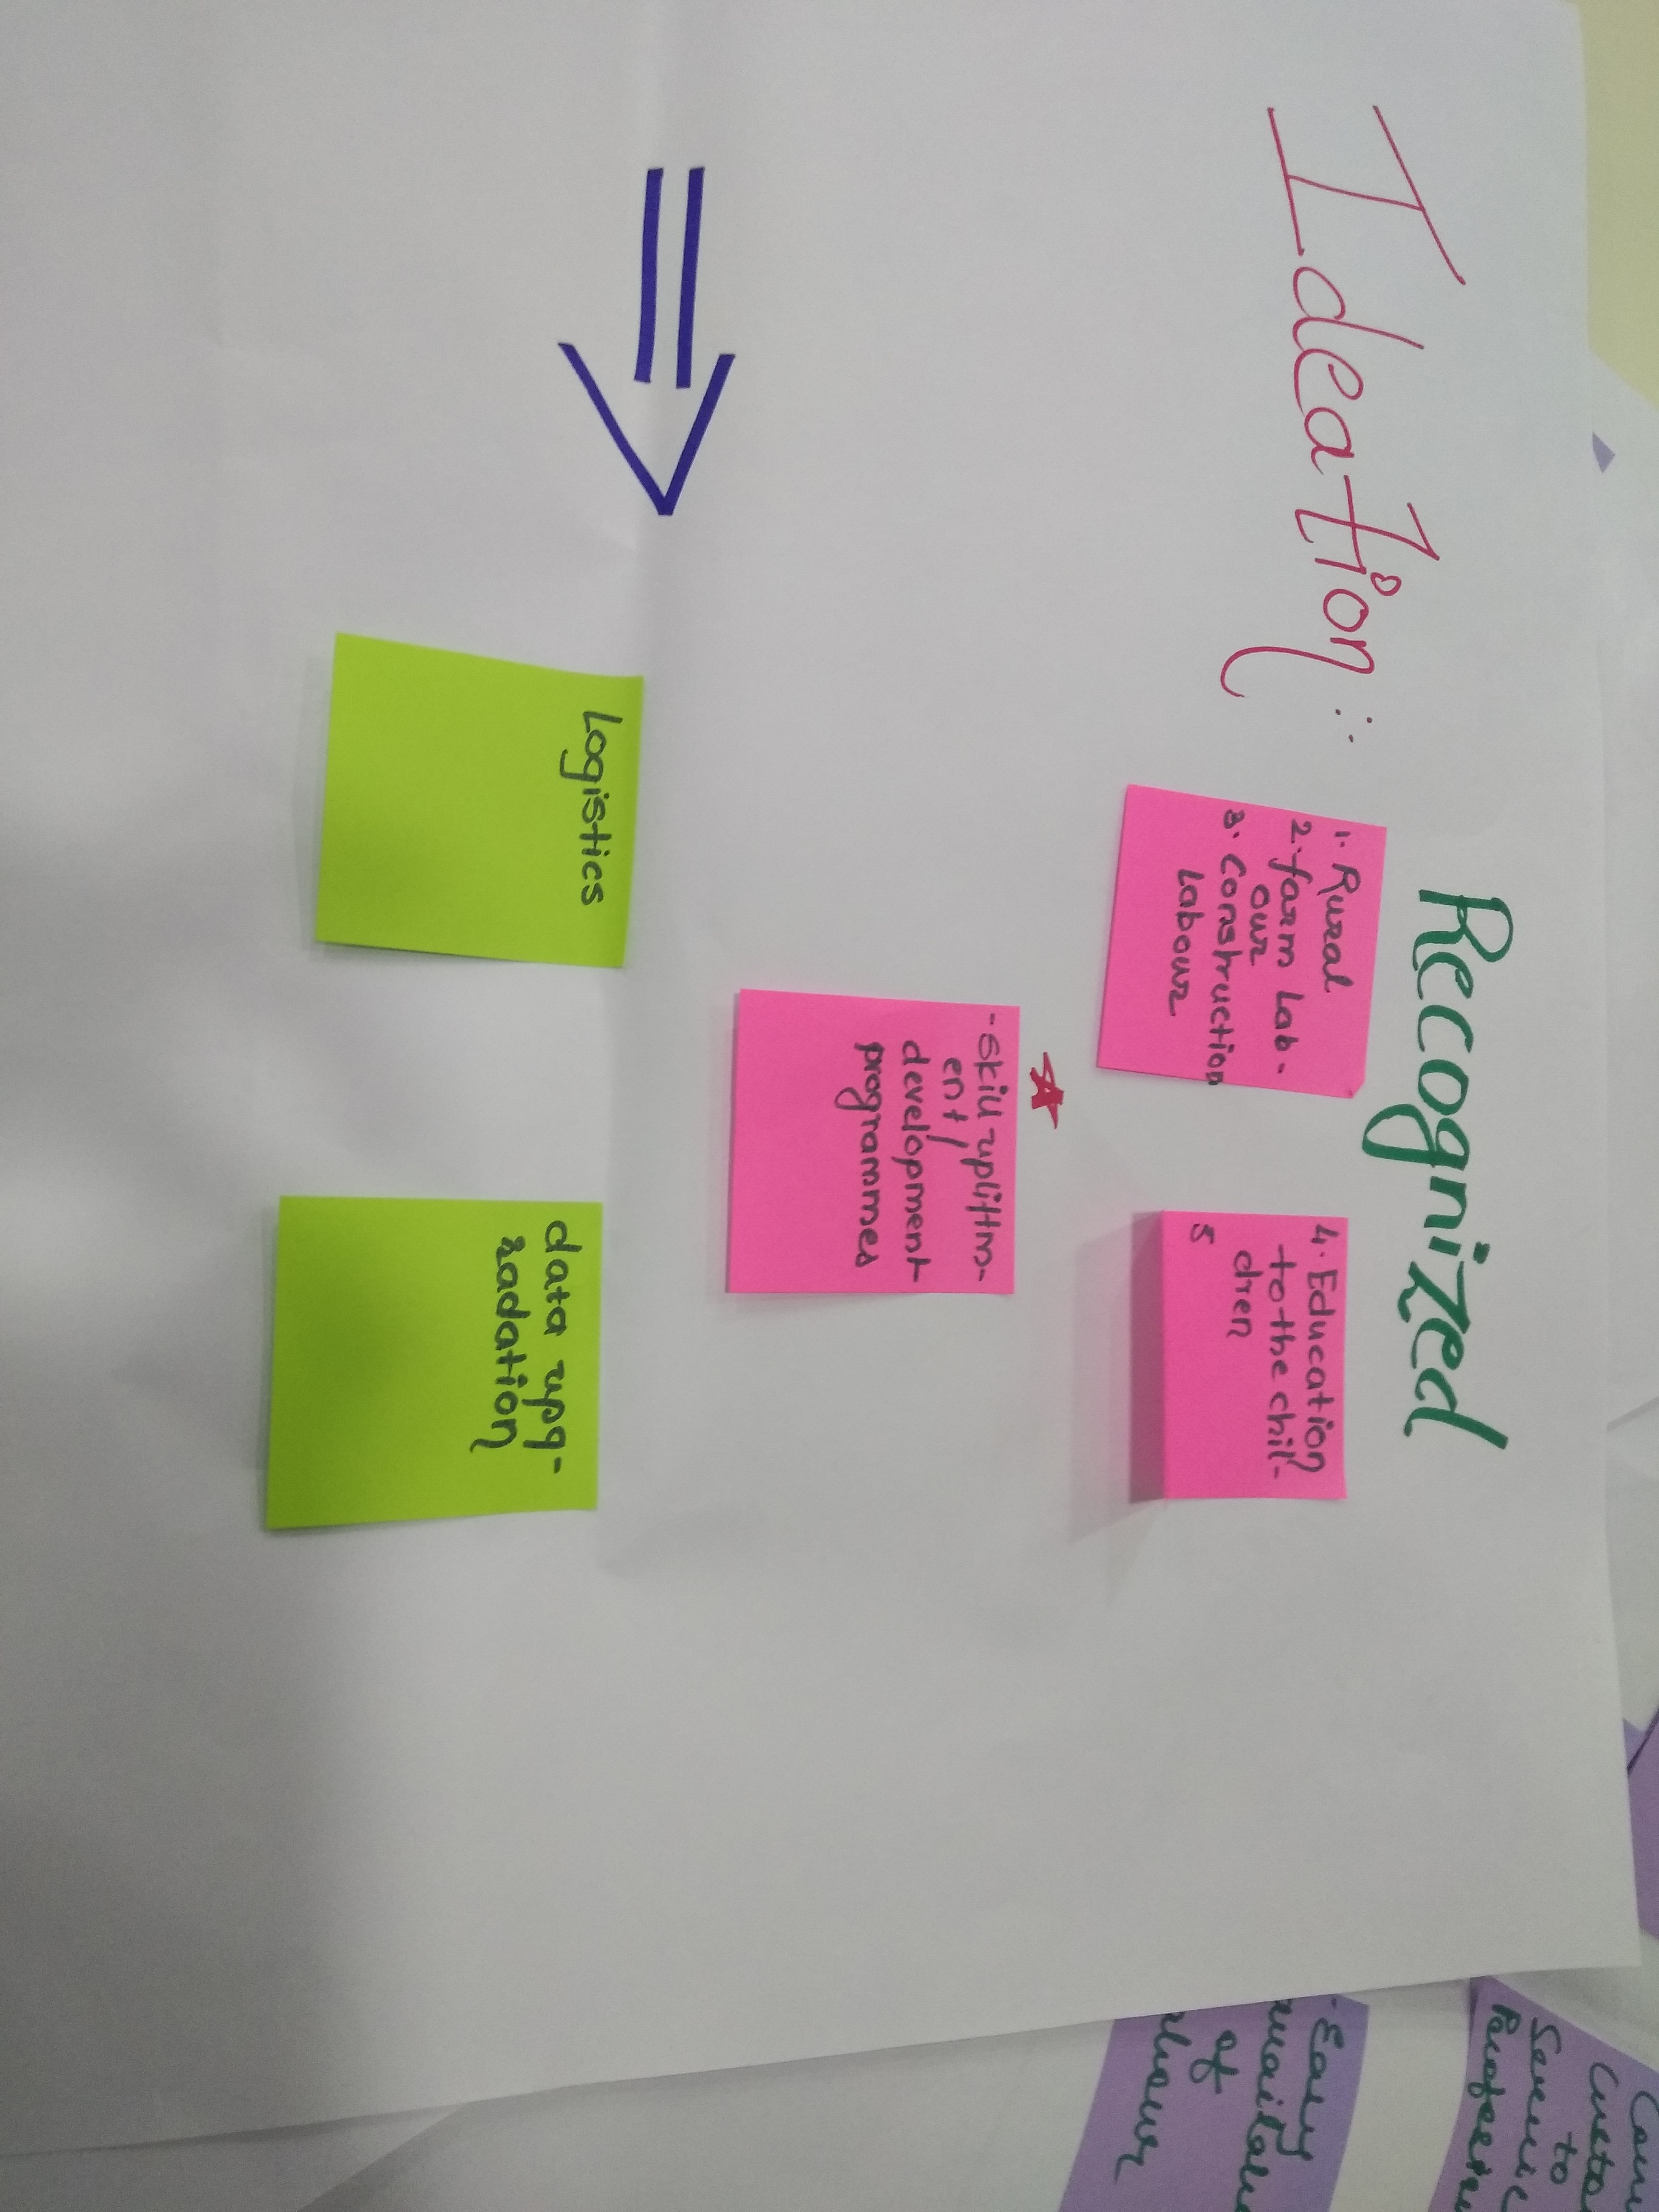 Ideation :-
Recognized
1. Rural
2. farm Lab-
our
3. Construction
Labour
4. Education
to the chil-
dren
5
- Skill upliftm-
ent /
development
programmes
Logistics
data upg-
radation
- Easy
of
to